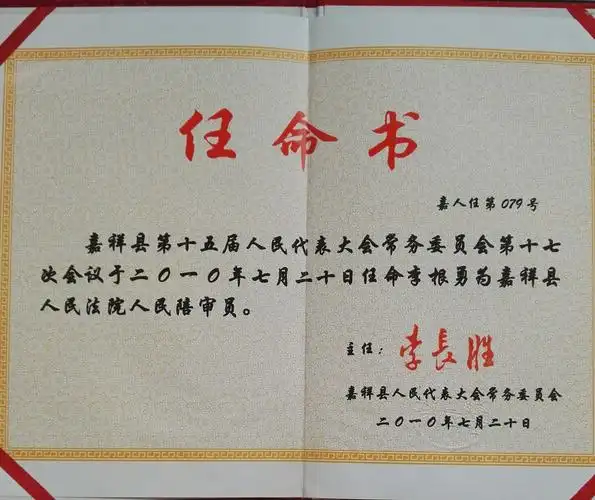 任命书
嘉人任第079号
嘉祥县第十五届人民代表大会常务委员会第十七
次会议于二〇一〇年七月二十日任命李根勇为嘉祥县
人民法院人民陪审员。
主任：李長胜
嘉祥县人民代表大会常务委员会
二〇一〇年七月二十日